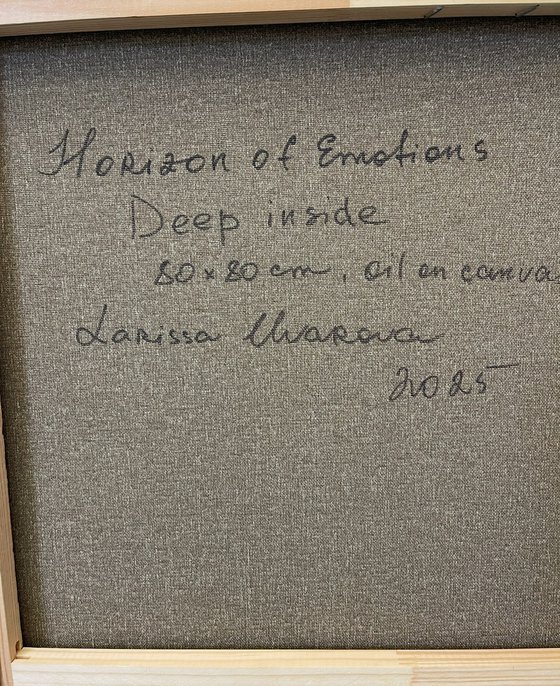 Horizon of Emotions
Deep inside
80 x 80 cm, oil on canvas
Larissa Uvarova
2025